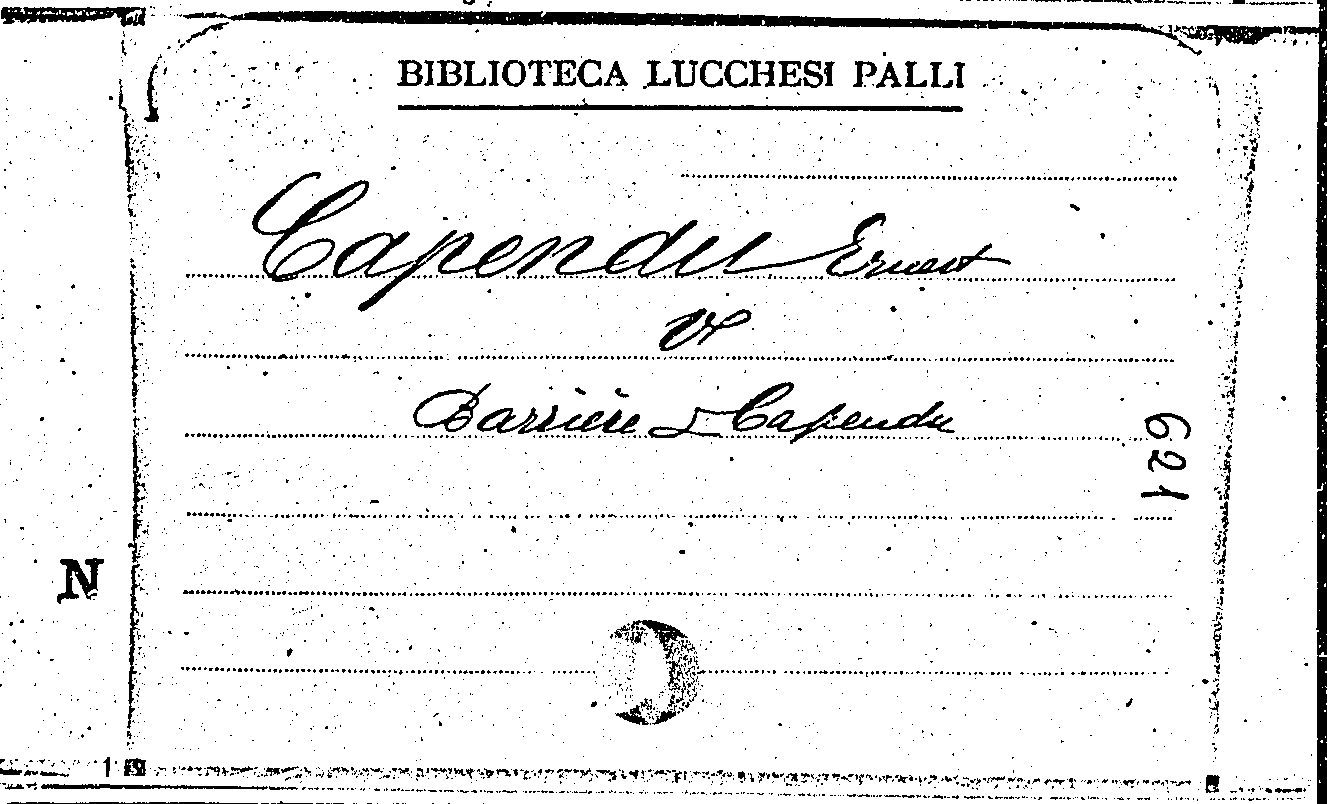 BIBLIOTECA LUCCHESI PALLI
Capendu Ernest
Barrière & Capendu
621
N
1